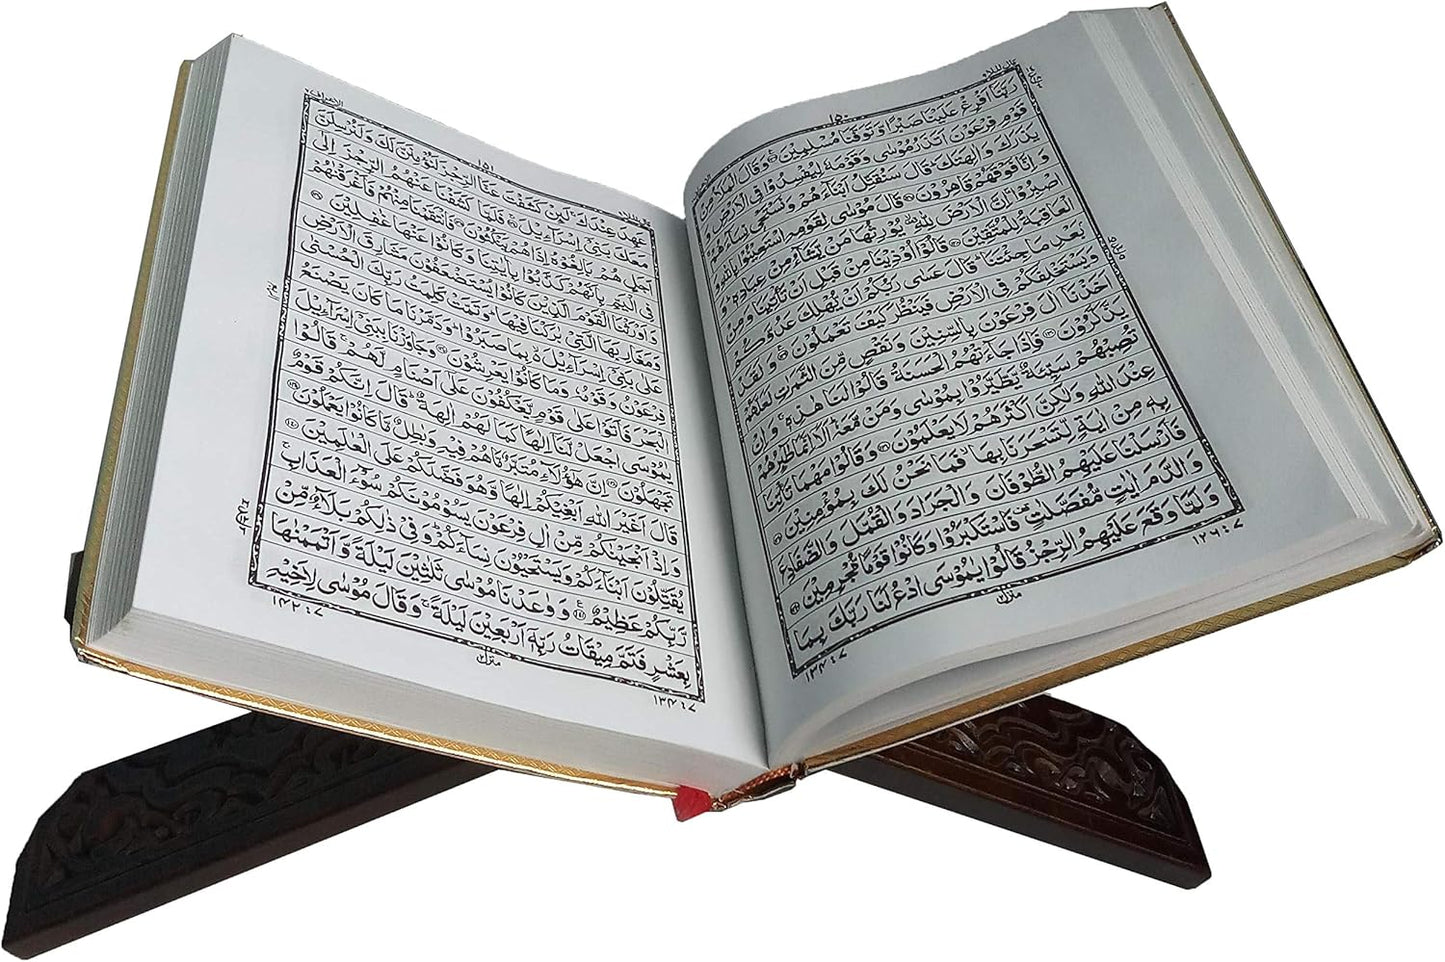 قال الملا ۹
۱۵۰
رَبَّنَآ اَفْرِغْ عَلَيْنَا صَبْرًا وَّ تَوَفَّنَا مُسْلِمِيْنَ وَقَالَ الْمَلَاُ مِنْ
قَوْمِ فِرْعَوْنَ اَتَذَرُ مُوْسٰى وَقَوْمَهٗ لِيُفْسِدُوْا فِى الْاَرْضِ
وَ يَذَرَكَ وَ اٰلِهَتَكَ قَالَ سَنُقَتِّلُ اَبْنَآءَهُمْ وَنَسْتَحْىٖ نِسَآءَهُمْ
وَ اِنَّا فَوْقَهُمْ قَاهِرُوْنَ قَالَ مُوْسٰى لِقَوْمِهِ اسْتَعِيْنُوْا بِاللّٰهِ وَ
اصْبِرُوْا اِنَّ الْاَرْضَ لِلّٰهِ يُوْرِثُهَا مَنْ يَّشَآءُ مِنْ عِبَادِهٖ وَ
الْعَاقِبَةُ لِلْمُتَّقِيْنَ قَالُوْٓا اُوْذِيْنَا مِنْ قَبْلِ اَنْ تَاْتِيَنَا وَمِنْ
بَعْدِ مَا جِئْتَنَا قَالَ عَسٰى رَبُّكُمْ اَنْ يُّهْلِكَ عَدُوَّكُمْ
وَيَسْتَخْلِفَكُمْ فِى الْاَرْضِ فَيَنْظُرَ كَيْفَ تَعْمَلُوْنَ وَ لَقَدْ
اَخَذْنَآ اٰلَ فِرْعَوْنَ بِالسِّنِيْنَ وَنَقْصٍ مِّنَ الثَّمَرٰتِ لَعَلَّهُمْ
يَذَّكَّرُوْنَ فَاِذَا جَآءَتْهُمُ الْحَسَنَةُ قَالُوْا لَنَا هٰذِهٖ وَ اِنْ
تُصِبْهُمْ سَيِّئَةٌ يَّطَّيَّرُوْا بِمُوْسٰى وَمَنْ مَّعَهٗ اَلَآ اِنَّمَا طٰٓئِرُهُمْ
عِنْدَ اللّٰهِ وَلٰكِنَّ اَكْثَرَهُمْ لَا يَعْلَمُوْنَ وَقَالُوْا مَهْمَا تَاْتِنَا
بِهٖ مِنْ اٰيَةٍ لِّتَسْحَرَنَا بِهَا فَمَا نَحْنُ لَكَ بِمُؤْمِنِيْنَ
فَاَرْسَلْنَا عَلَيْهِمُ الطُّوْفَانَ وَالْجَرَادَ وَالْقُمَّلَ وَالضَّفَادِعَ
وَالدَّمَ اٰيٰتٍ مُّفَصَّلٰتٍ فَاسْتَكْبَرُوْا وَكَانُوْا قَوْمًا مُّجْرِمِيْنَ
وَلَمَّا وَقَعَ عَلَيْهِمُ الرِّجْزُ قَالُوْا يٰمُوْسَى ادْعُ لَنَا رَبَّكَ بِمَا
منزل
۱۵۱
الاعراف ۷
عَهِدَ عِنْدَكَ لَئِنْ كَشَفْتَ عَنَّا الرِّجْزَ لَنُؤْمِنَنَّ لَكَ وَ لَنُرْسِلَنَّ
مَعَكَ بَنِىْٓ اِسْرَآءِيْلَ فَلَمَّا كَشَفْنَا عَنْهُمُ الرِّجْزَ اِلٰٓى
اَجَلٍ هُمْ بٰلِغُوْهُ اِذَا هُمْ يَنْكُثُوْنَ فَانْتَقَمْنَا مِنْهُمْ فَاَغْرَقْنٰهُمْ
فِى الْيَمِّ بِاَنَّهُمْ كَذَّبُوْا بِاٰيٰتِنَا وَ كَانُوْا عَنْهَا غٰفِلِيْنَ
وَ اَوْرَثْنَا الْقَوْمَ الَّذِيْنَ كَانُوْا يُسْتَضْعَفُوْنَ مَشَارِقَ الْاَرْضِ
وَمَغَارِبَهَا الَّتِىْ بٰرَكْنَا فِيْهَا وَتَمَّتْ كَلِمَتُ رَبِّكَ الْحُسْنٰى
عَلٰى بَنِىْٓ اِسْرَآءِيْلَ بِمَا صَبَرُوْا وَدَمَّرْنَا مَا كَانَ يَصْنَعُ
فِرْعَوْنُ وَ قَوْمُهٗ وَمَا كَانُوْا يَعْرِشُوْنَ وَجَاوَزْنَا بِبَنِىْٓ اِسْرَآءِيْلَ
الْبَحْرَ فَاَتَوْا عَلٰى قَوْمٍ يَّعْكُفُوْنَ عَلٰٓى اَصْنَامٍ لَّهُمْ قَالُوْا
يٰمُوْسَى اجْعَلْ لَّنَآ اِلٰهًا كَمَا لَهُمْ اٰلِهَةٌ قَالَ اِنَّكُمْ قَوْمٌ
تَجْهَلُوْنَ اِنَّ هٰٓؤُلَآءِ مُتَبَّرٌ مَّا هُمْ فِيْهِ وَبٰطِلٌ مَّا كَانُوْا يَعْمَلُوْنَ
قَالَ اَغَيْرَ اللّٰهِ اَبْغِيْكُمْ اِلٰهًا وَّهُوَ فَضَّلَكُمْ عَلَى الْعٰلَمِيْنَ
وَاِذْ اَنْجَيْنٰكُمْ مِّنْ اٰلِ فِرْعَوْنَ يَسُوْمُوْنَكُمْ سُوْٓءَ الْعَذَابِ
يُقَتِّلُوْنَ اَبْنَآءَكُمْ وَ يَسْتَحْيُوْنَ نِسَآءَكُمْ وَفِىْ ذٰلِكُمْ بَلَآءٌ مِّنْ
رَّبِّكُمْ عَظِيْمٌ وَ وٰعَدْنَا مُوْسٰى ثَلٰثِيْنَ لَيْلَةً وَّ اَتْمَمْنٰهَا
بِعَشْرٍ فَتَمَّ مِيْقَاتُ رَبِّهٖٓ اَرْبَعِيْنَ لَيْلَةً وَ قَالَ مُوْسٰى لِاَخِيْهِ
منزل